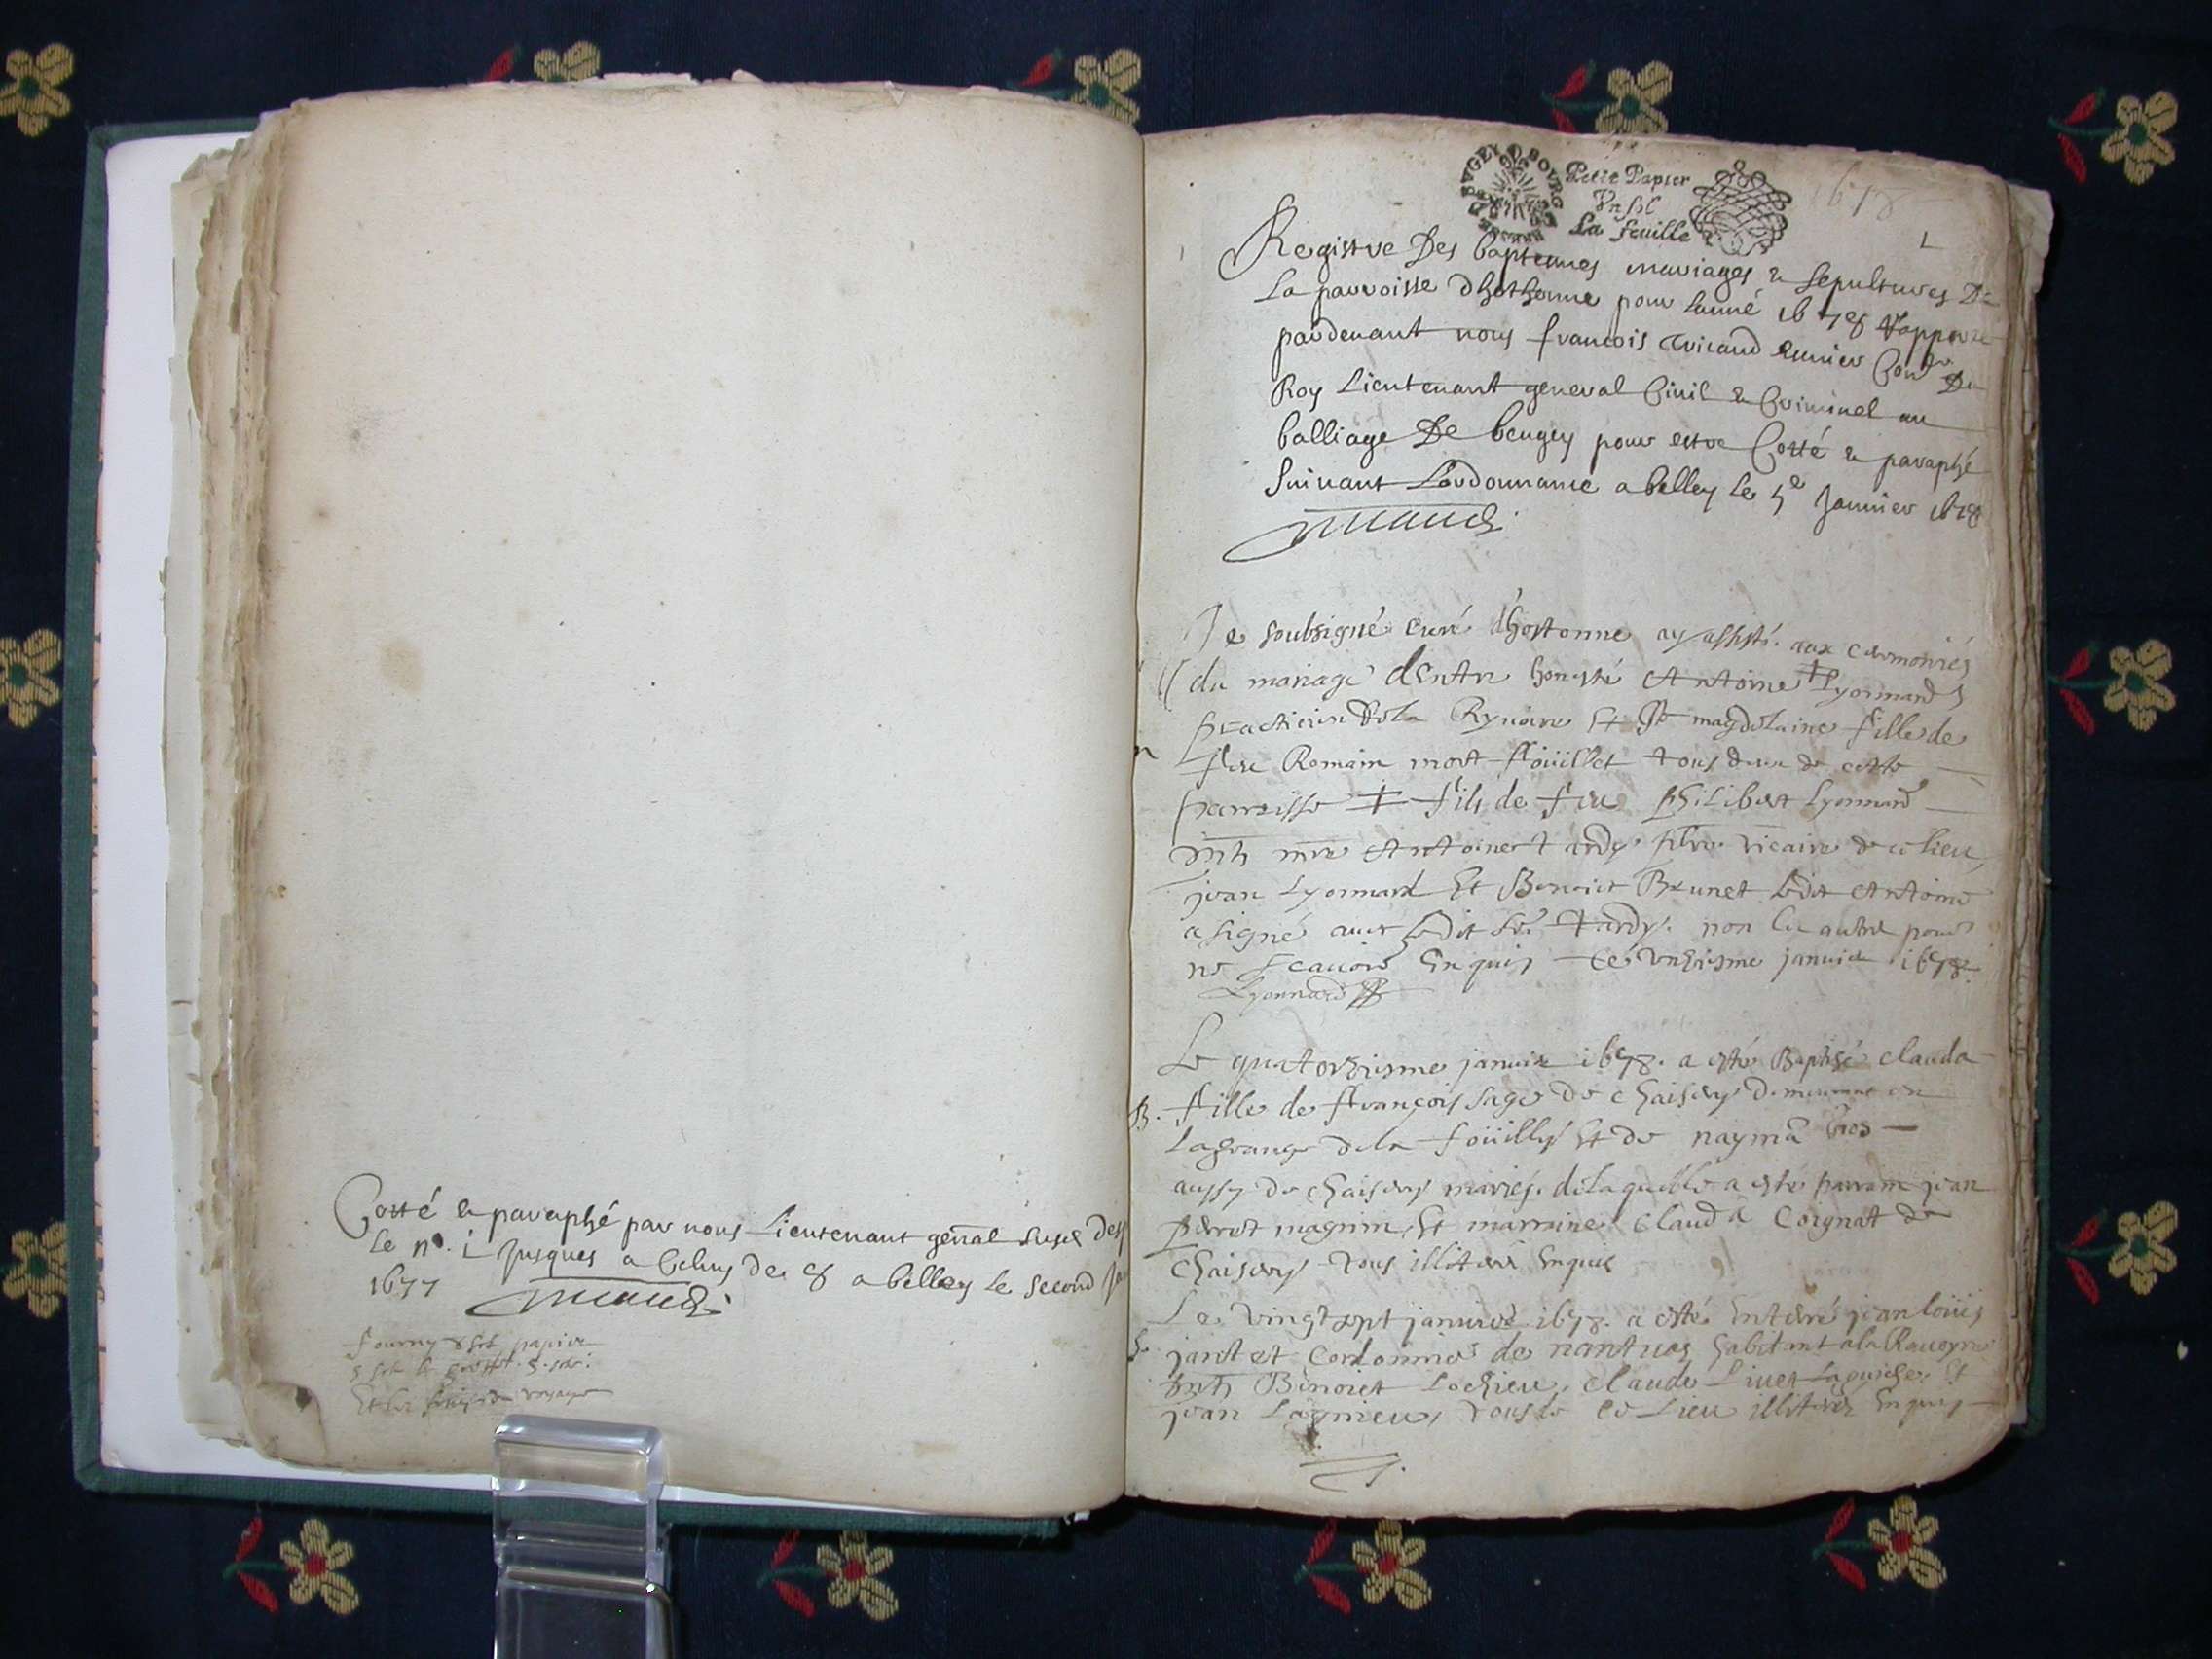 Cotté & paraphé par nous Lieutenant genral
le no. i jusques a Celuy de 8 a belley le second
1677
fourny & sol papier
BVGEY BOVRG
Petit Papier
Vn sol
La feuille
1678
1
Registre Des baptesmes mariages & sepultures De
la parroisse dhothonne pour lanné 1678 Rapporté
pardeuant nous francois escuier Conr Du
Roy Lieutenant general Ciuil & Criminel au
balliage De beugey pour estre Cotté & paraphé
suiuant Lordonnance a belley le 5e Januier 1678
Je soubsigné curé dhostonne ay assisté aux ceremonies
du mariage dEntre honeste Antoine ‡ Lyonnard
practicien de la Et magdelaine fille de
feu Romain mort foüillet tous deux de cette
parroisse ‡ fils de feu philibert Lyonnard
Antoine tardy vicaire de ce lieu
jean Lyonnard Et Benoict Brunet Ledit Antoine
a signé auec Ledit Sr tardy. non les autres pour
ne scauoir Enquis ce Vnziesme januier 1678.
Lyonnard
Le quatorziesme januier 1678. a esté Baptisé clauda
B. fille de françois sage de chaisery demeurant en
Lagrange de la foüilly Et de nayma
aussy de chaisery mariés. de laquelle a esté parrain jean
perrot magnin Et marraine clauda Coignat de
Chaisery tous illiteres Enquis
Le vingt sept januier 1678. a esté Enterré jean loüis
S. jantet Cordonnier de nantuas habitant a la
Benoict Lochieu, claude Liuet Et
jean Lagnieu, tous de ce Lieu illiteres Enquis